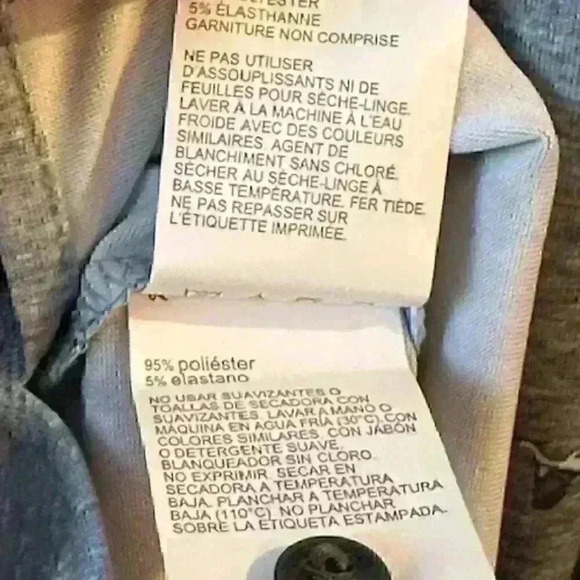 5% ÉLASTHANNE
GARNITURE NON COMPRISE
NE PAS UTILISER
D'ASSOUPLISSANTS NI DE
FEUILLES POUR SÈCHE-LINGE.
LAVER À LA MACHINE À L'EAU
FROIDE AVEC DES COULEURS
SIMILAIRES. AGENT DE
BLANCHIMENT SANS CHLORE.
SÉCHER AU SÈCHE-LINGE À
BASSE TEMPÉRATURE. FER TIÈDE.
NE PAS REPASSER SUR
L'ÉTIQUETTE IMPRIMÉE.
95% poliéster
5% elastano
NO USAR SUAVIZANTES O
TOALLAS DE SECADORA CON
SUAVIZANTES. LAVAR A MANO O
MÁQUINA EN AGUA FRÍA (30°C) CON
COLORES SIMILARES, CON JABÓN
O DETERGENTE SUAVE.
BLANQUEADOR SIN CLORO.
NO EXPRIMIR. SECAR EN
SECADORA A TEMPERATURA
BAJA. PLANCHAR A TEMPERATURA
BAJA (110°C). NO PLANCHAR
SOBRE LA ETIQUETA ESTAMPADA.